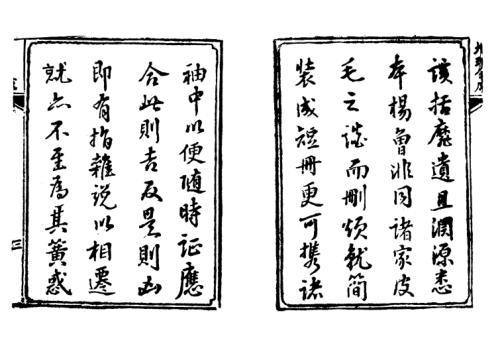 該括靡遺且淵源悉
本楊曾非同諸家皮
毛之談而刪煩就簡
裝成短冊更可攜諸
袖中以便隨時證應
合此則吉反是則凶
即有指雜說以相遷
就亦不至為其簧惑
三